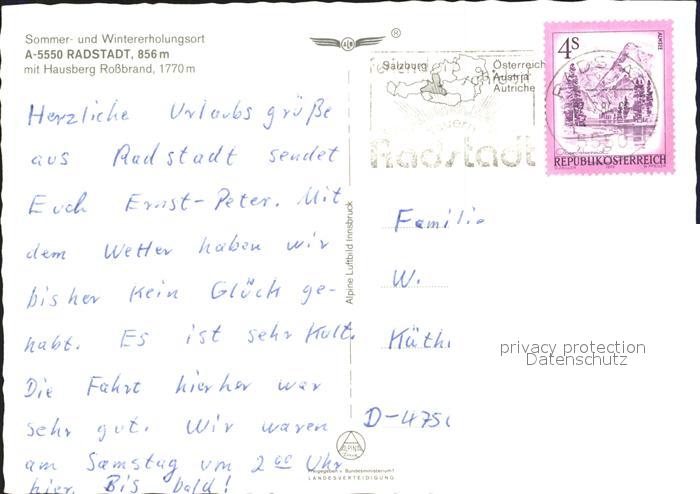 Sommer- und Wintererholungsort
A-5550 RADSTADT, 856 m
mit Hausberg Roßbrand, 1770 m
Herzliche Urlaubsgrüße
aus Radstadt sendet
Euch Ernst-Peter. Mit
dem Wetter haben wir
bisher kein Glück ge-
habt. Es ist sehr kalt.
Die Fahrt hierher war
sehr gut. Wir waren
am Samstag um 2 00 Uhr
hier. Bis bald!
Alpine Luftbild Innsbruck
®
Salzburg
Österreich
Austria
Autriche
Radstadt
4 S
ALMSEE
REPUBLIK ÖSTERREICH
Familie
W.
Käth
D-475
privacy protection
Datenschutz
ALPINE
Freigegeben v. Bundesministerium f.
LANDESVERTEIDIGUNG